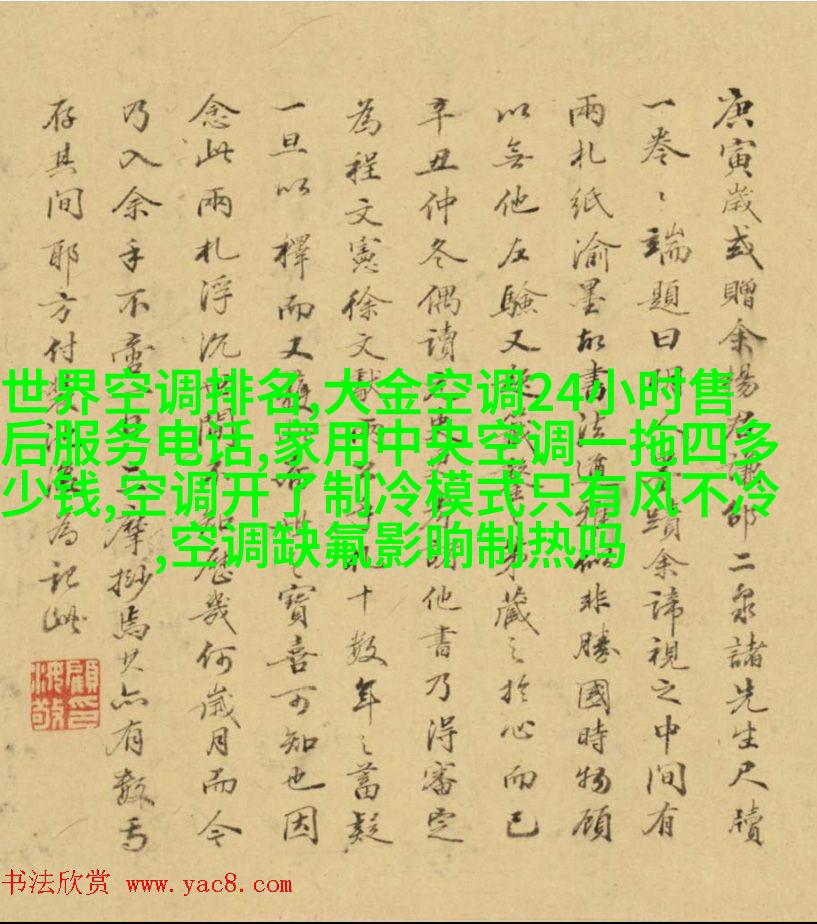 庚寅歲或贈余楊君謙邵二泉諸先生尺牘
一卷〻端題曰蹟余諦視之中間有
兩札紙渝墨故書法遒雅似非勝國時物顧
以無他左驗又藏〻於心而已
辛丑仲冬偶讀他書乃得審定
為程文憲徐文獻兩十數年〻蓄疑
一旦以釋而又寶喜可知也因
念此兩札浮沉間不知歷幾何歲月而今
乃入余手不摩挱焉其亦有數焉
存其間耶方付裝池漫為記此
世界空调排名,大金空调24小时售
后服务电话,家用中央空调一拖四多
少钱,空调开了制冷模式只有风不冷
,空调缺氟影响制热吗
书法欣赏 www.yac8.com